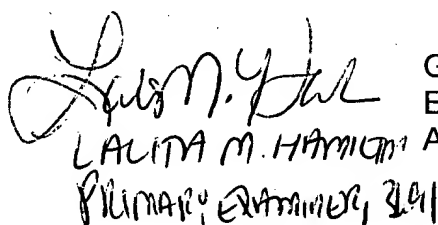 G
E
LALITA M. HAMILTON A
PRIMARY EXAMINER, 3691